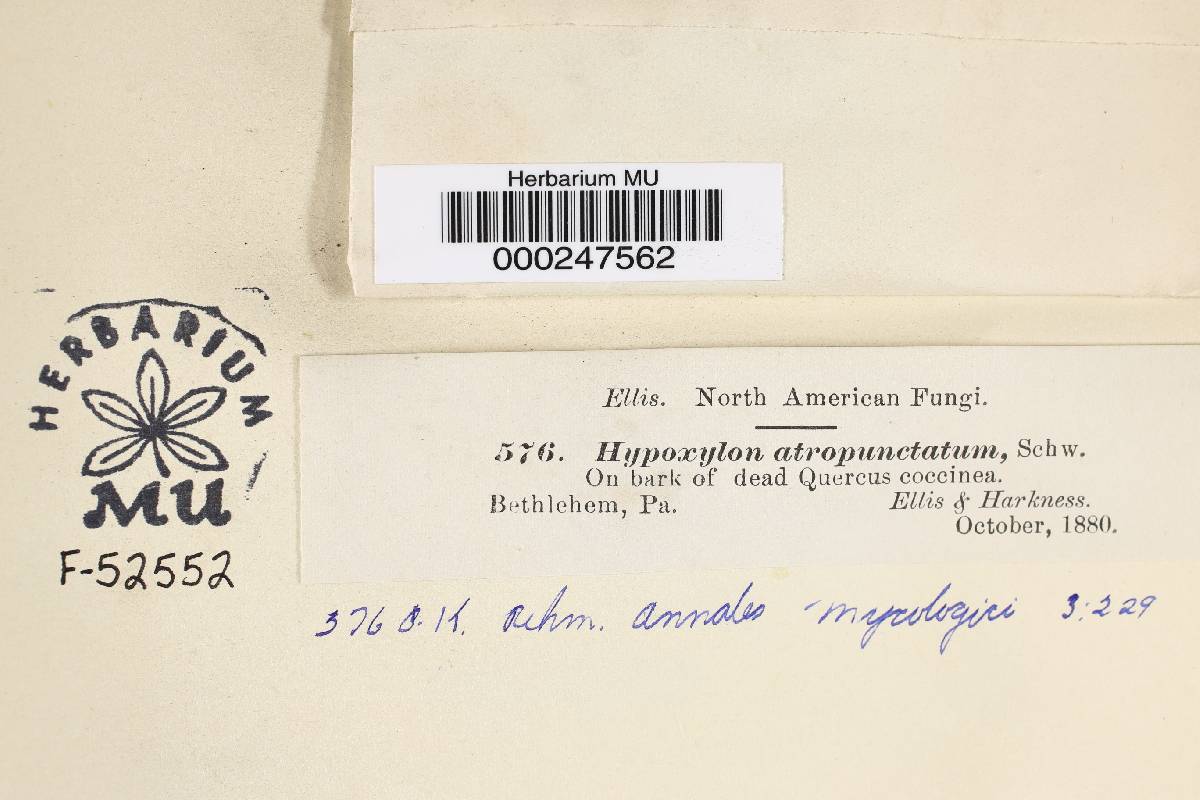 Herbarium MU
000247562
HERBARIUM
MU
F-52552
Ellis. North American Fungi.
576. Hypoxylon atropunctatum, Schw.
On bark of dead Quercus coccinea.
Bethlehem, Pa. Ellis & Harkness.
October, 1880.
376 O.K. Rehm. Annales Mycologici 3:229